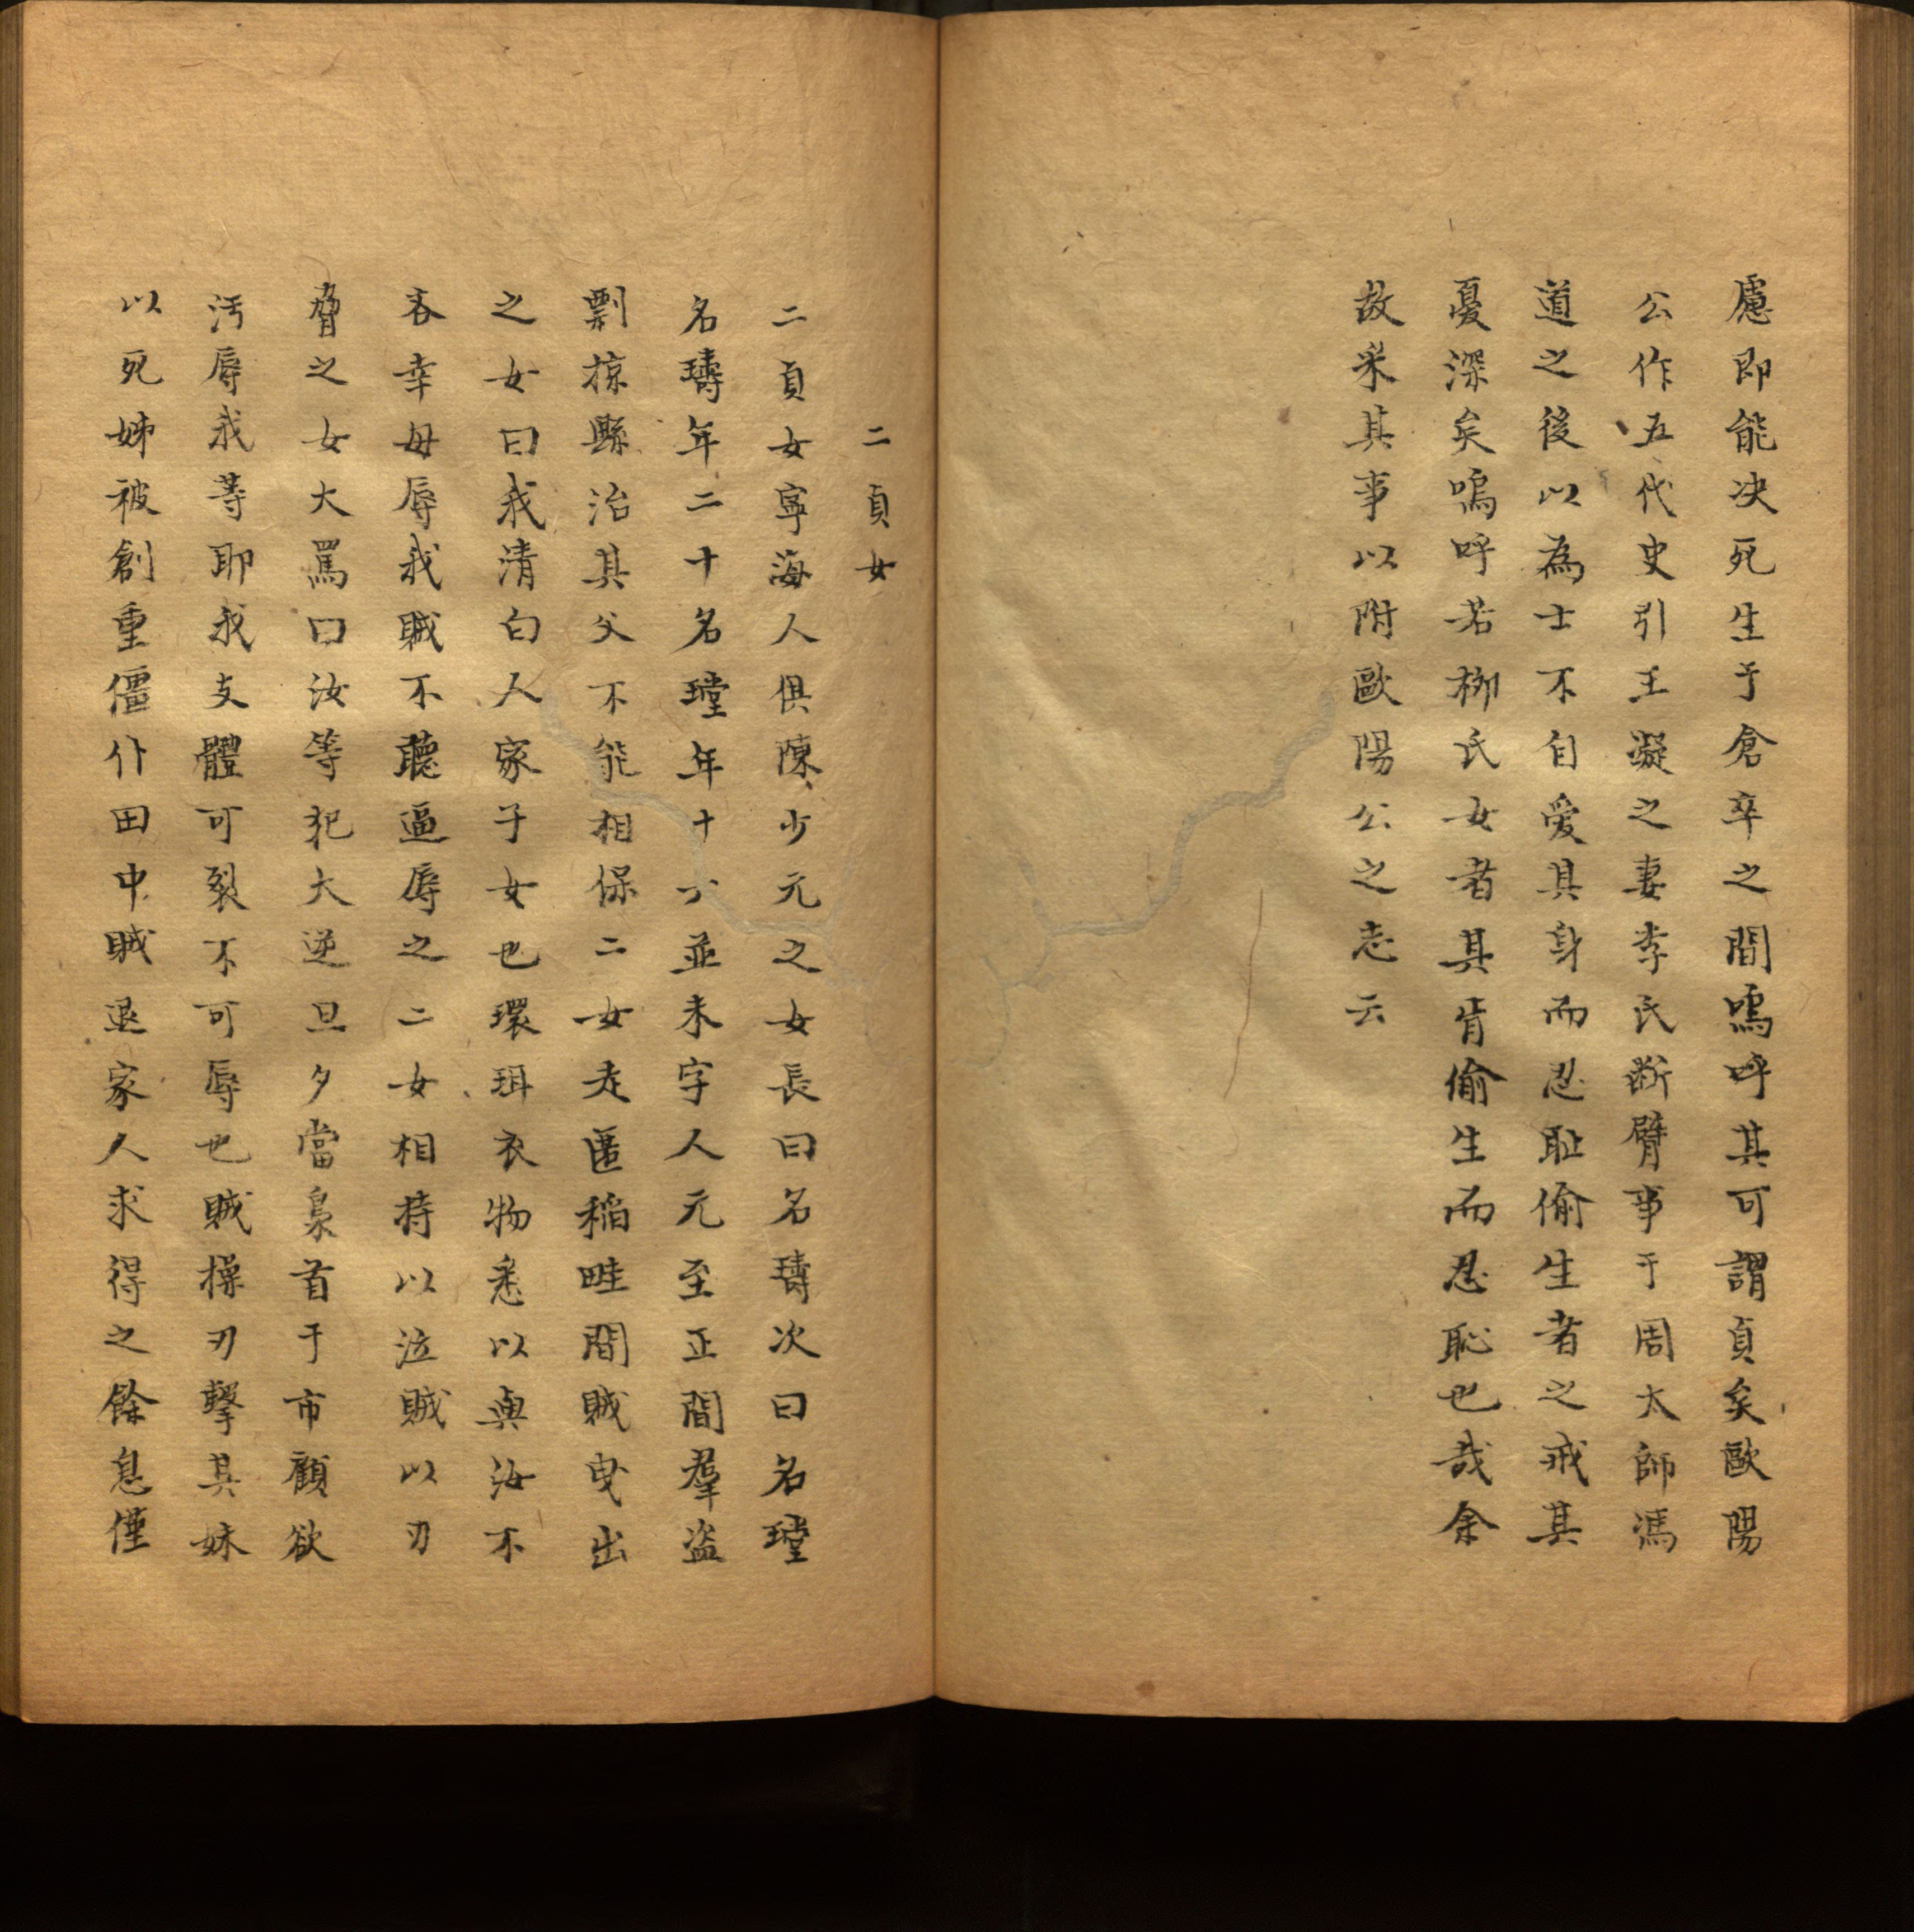 慮即能决死生于倉卒之間嗚呼其可謂貞矣歐陽
公作五代史引王凝之妻李氏断臂事于周太師馮
道之後以為士不自愛其身而忍耻偷生者之戒其
憂深矣嗚呼若栁氏女者其肯偷生而忍恥也哉余
故采其事以附歐陽公之志云
二貞女
二貞女寧海人俱陳少元之女長曰名璹次曰名瑝
名璹年二十名瑝年十六並未字人元至正間羣盗
剽掠縣治其父不能相保二女走匿稲畦間賊曳出
之女曰我清白人家子女也環珥衣物悉以與汝不
吝幸毋辱我賊不聽逼辱之二女相持以泣賊以刃
脅之女大罵曰汝等犯大逆旦夕當梟首于市顧欲
汚辱我等耶我支體可裂不可辱也賊操刃擊其妹
以死姊被創重僵仆田中賊退家人求得之餘息僅